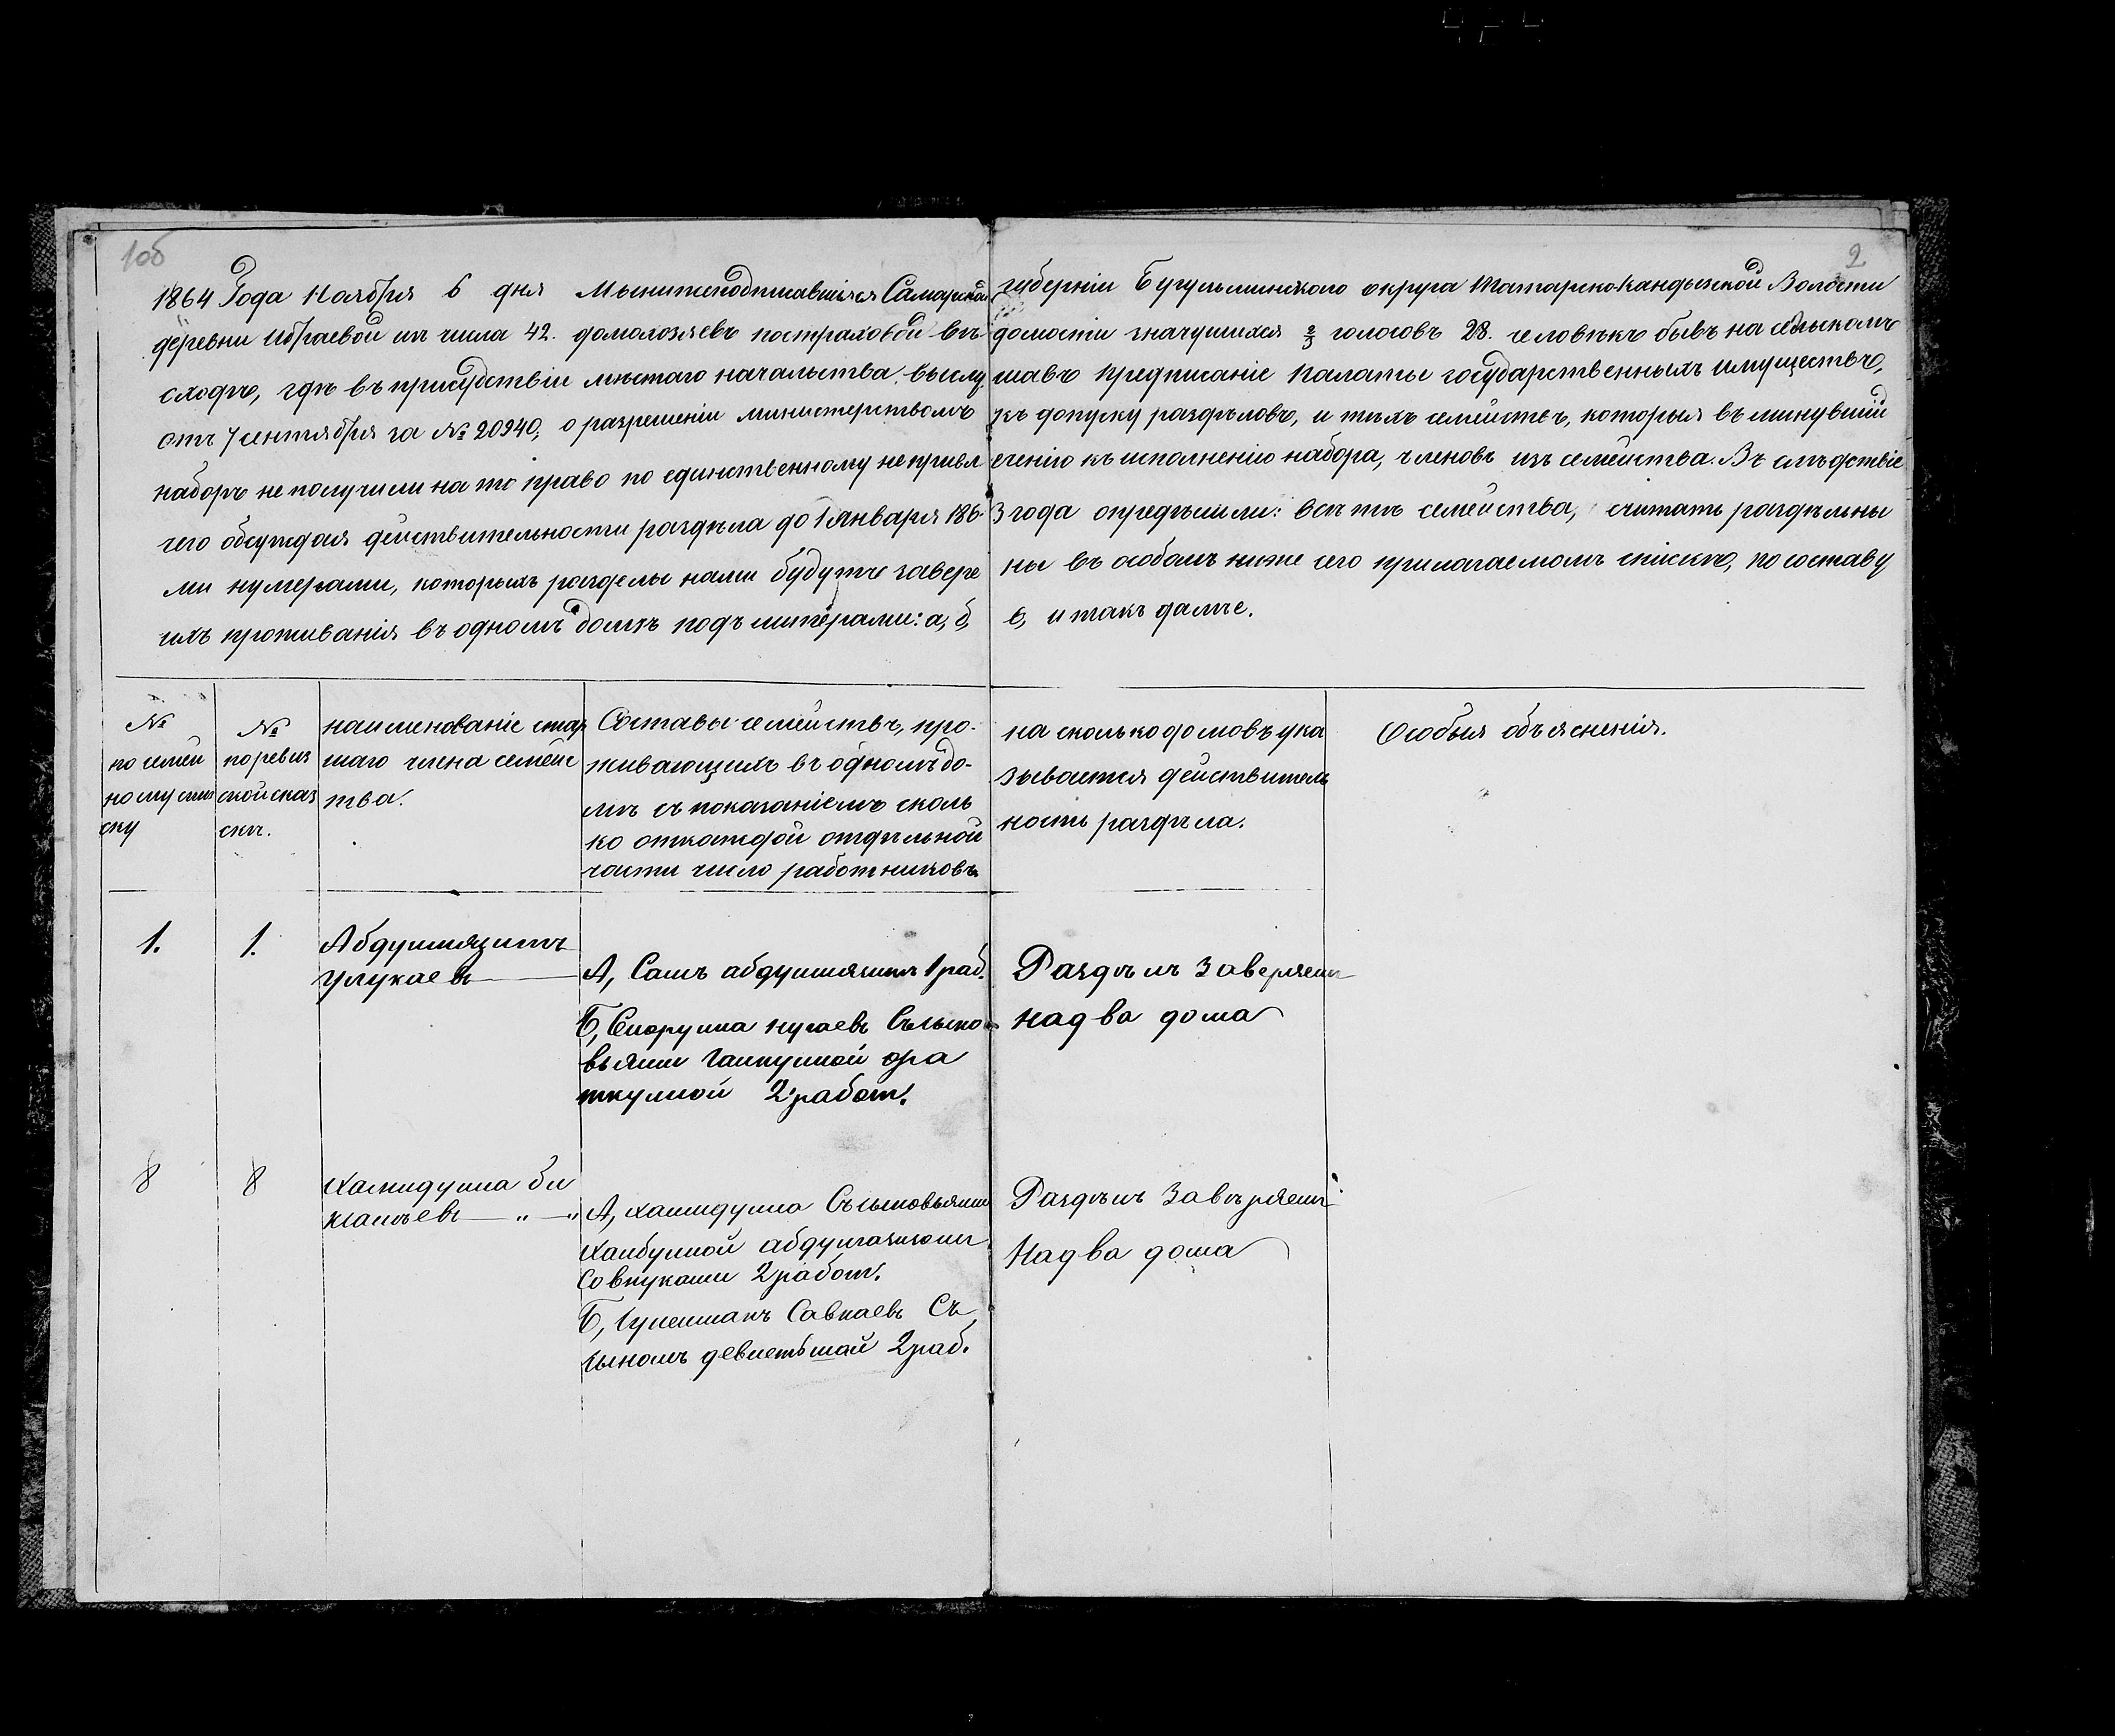 1об
2
1864 Года Ноября 6 дня Мынижеподписавшіяся Самарской губерніи Бугульминскаго округа Татарско-Кандызской Волости
деревни Ибраевой изъ числа 42. домохозяевъ постраховой въдомости значущихся 2/3 голосовъ 28. человѣкъ бывъ на сельскомъ
сходѣ, гдѣ въ присудствіи мѣстаго начальства выслушавъ предписаніе Палаты государственныхъ имуществъ,
отъ 7 сентября за № 20940, о разрешеніи министерствомъ къ допуску раздѣловъ, и тѣхъ семействъ, которыя въ минувшій
наборъ не получили на то право по единственному непривлеченію къ исполненію набора, членовъ изъ семейства. Въ слѣдствіе
чего обсуждая действительности раздѣла до 1 Января 1863 года опредѣлили: всѣ тѣ семейства, считать раздѣльны
ми нумерами, которыхъ разделы нами будутъ заверены въ особомъ ниже сего прилагаемомъ спискѣ, по составу
ихъ проживанія въ одномъ домѣ подъ литерами: а, б, в, и такъ далѣе.
№
по семей
ному спи
ску
№
по ревиз
ской сказ
скѣ.
наименованіе стар
шаго члена семейс
тва.
Составы семействъ, про-
живающихъ въ одномъ до-
мѣ съ показаніемъ сколь
ко откаждой отдѣльной
части число работниковъ
на сколько домовъ ука
зывается действитель
ность раздѣла.
Особыя объясненія.
1.
1.
Улукаевъ
А, Самъ 1 раб.
Раздѣлъ Заверяемъ
Б, Сыно
вьями
2 работ.
надва дома
8
8
Хамидулла Би
А, хамидулла Съсыновьями
Хайбуллой
Совнуками 2 работ.
Б, Савкаевъ Съ
сыномъ 2 раб.
Раздѣлъ Завѣряемъ
Надва дома